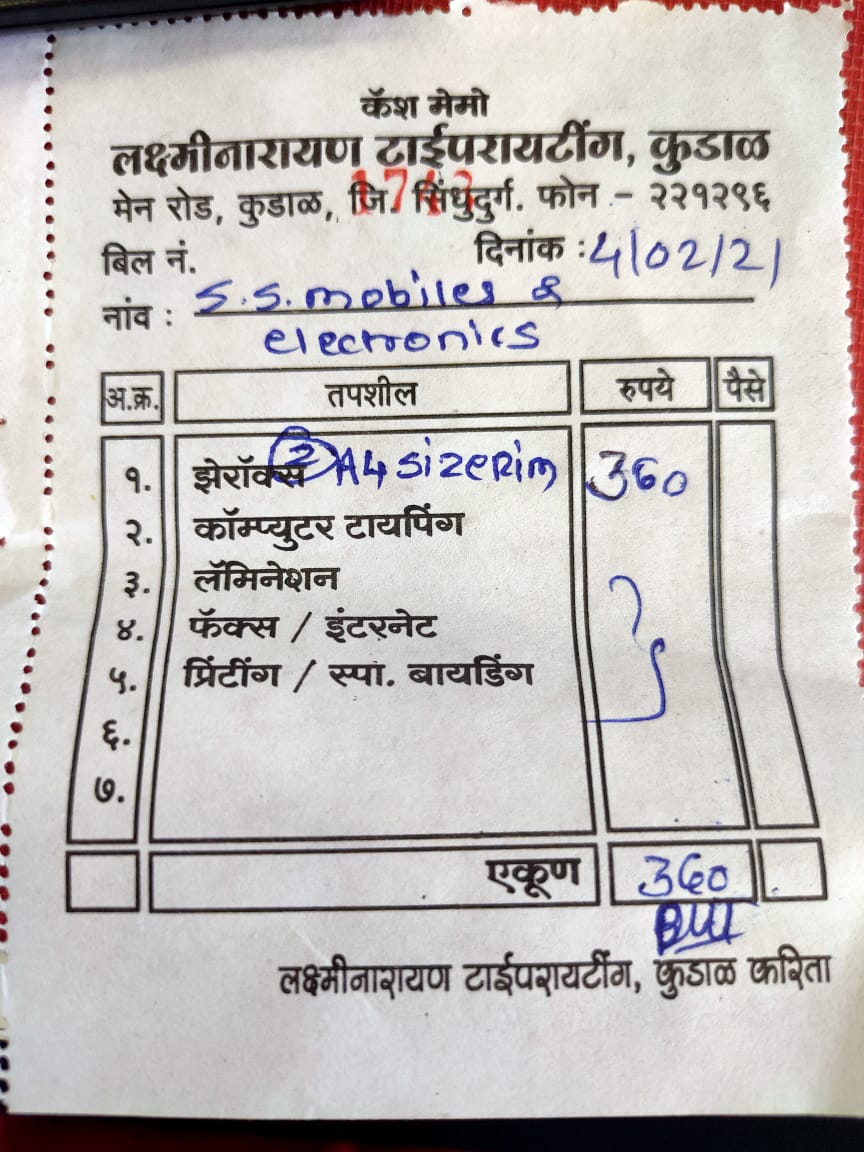 कॅश मेमो
लक्ष्मीनारायण टाईपरायटींग, कुडाळ
मेन रोड, कुडाळ, जि. सिंधुदुर्ग. फोन - २२१२९६
बिल नं. दिनांक : 4/02/21
नांव : S.S. mobiles &
electronics
अ.क्र. तपशील रुपये पैसे
१. झेरॉक्स 2 A4 size Rim 360
२. कॉम्प्युटर टायपिंग
३. लॅमिनेशन
४. फॅक्स / इंटरनेट
५. प्रिंटींग / स्पा. बायडिंग
६.
७.
एकूण 360
लक्ष्मीनारायण टाईपरायटींग, कुडाळ करिता